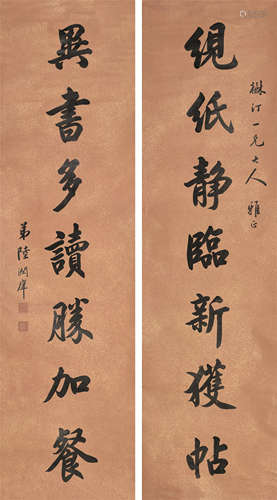 繭紙静臨新獲帖
楙汀一兄大人雅正
異書多讀勝加餐
弟陸潤庠